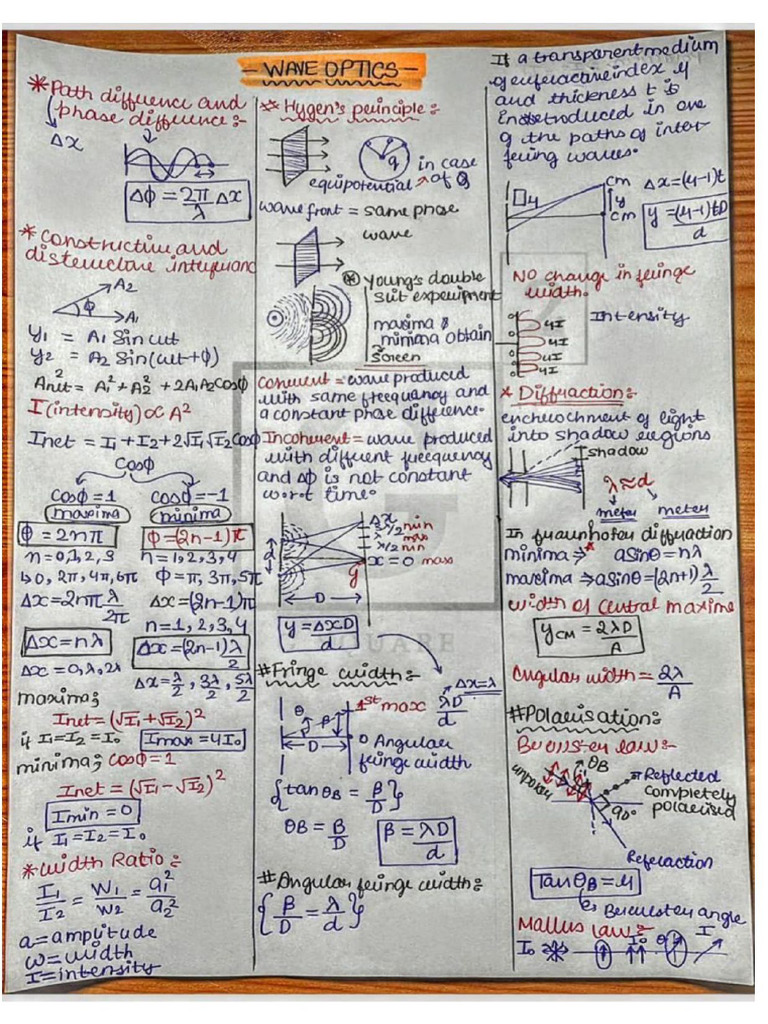 - WAVE OPTICS -
* Path difference and
phase difference :-
Δx
Δϕ = 2π/λ Δx
* Constructive and
distructive interferance
A2
ϕ
A1
y1 = A1 Sin ωt
y2 = A2 Sin(ωt+ϕ)
A²net = A1² + A2² + 2A1A2 Cosϕ
I (intensity) ∝ A²
Inet = I1 + I2 + 2√I1 √I2 Cosϕ
Cosϕ
Cosϕ = 1 Cosϕ = -1
maxima minima
ϕ = 2nπ ϕ = (2n-1)π
n = 0,1,2,3 n = 1,2,3,4
↳ 0, 2π, 4π, 6π ϕ = π, 3π, 5π
Δx = 2nπ λ/2π Δx = (2n-1)π
n = 1,2,3,4
Δx = nλ Δx = (2n-1) λ/2
Δx = 0, λ, 2λ Δx = λ/2, 3λ/2, 5λ/2
maxima;
Inet = (√I1 + √I2)²
if I1 = I2 = I0 Imax = 4I0
minima; cosϕ = 1
Inet = (√I1 - √I2)²
Imin = 0
if I1 = I2 = I0
* Width Ratio :-
I1/I2 = W1/W2 = a1²/a2²
a = amplitude
ω = width
I = intensity
** Hygen's principle :-
q
in case
of Q
equipotential
wave front = same phase
wave
* Young's double
slit experiment
maxima &
minima obtain
Screen
Coherent = wave produced
with same frequency and
a constant phase difference.
Incoherent = wave produced
with different frequency
and Δϕ is not constant
w.r.t time.
Δx
min
λ/2 max
λ/2 min
x = 0 max
d
D
y = ΔxD/d
# Fringe width :-
Δx = λ
1st max λD/d
θ
β
D
0 Angular
fringe width
{tan θB = β/D}
θB = β/D
β = λD/d
# Angular fringe width :-
{β/D = λ/d}
If a transparent medium
of refractive index μ
and thickness t is
introduced in one
of the paths of inter-
fering waves.
μ
CM
y
CM
Δx = (μ-1)t
y = (μ-1)tD/d
No change in fringe
width.
Intensity
0
4I
0
4I
0
4I
0
4I
0
* Diffraction :-
encherochment of light
into shadow regions
shadow
λ ≈ d
meter meter
In fraunhofer diffraction
minima ⇒ a sinθ = nλ
maxima ⇒ a sinθ = (2n+1) λ/2
width of central maxima
yCM = 2λD/A
Angular width = 2λ/A
# Polarisation :-
Brewster law :-
θB
unpolar
Reflected
completely
polarised
90°
Refraction
Tan θB = μ
↳ Brewster angle
Mallus law :-
I0
θ
I